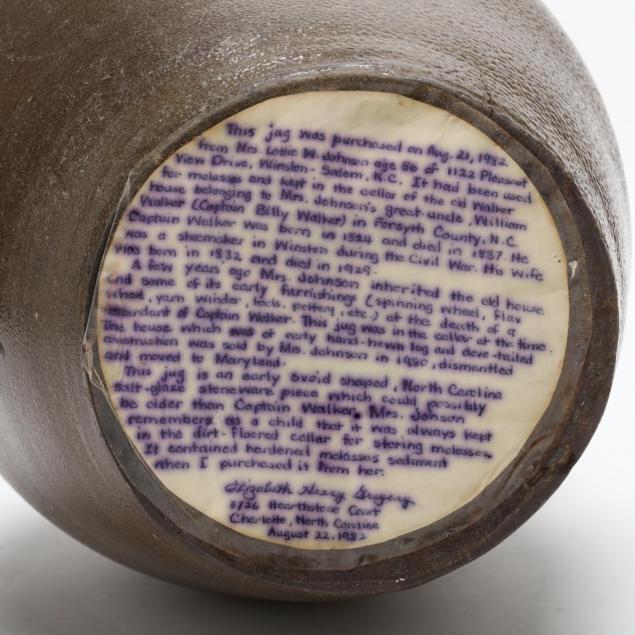 This jug was purchased on Aug. 21, 1982
from Mrs. Lottie W. Johnson age 86 of 1122 Pleasant
View Drive, Winston-Salem, N.C. It had been used
for molasses and kept in the cellar of the old Walker
house belonging to Mrs. Johnson's great-uncle, William
Walker (Captain Billy Walker) in Forsyth County, N.C.
Captain Walker was born in 1824 and died in 1887. He
was a shoemaker in Winston during the Civil War. His wife
was born in 1832 and died in 1929.
A few years ago Mrs. Johnson inherited the old house
and some of its early furnishings (spinning wheel, flax
wheel, yarn winder, tools, pottery, etc.) at the death of a
descendant of Captain Walker. This jug was in the cellar at the time.
The house which was of early hand-hewn log and dove-tailed
construction was sold by Mrs. Johnson in 1980, dismantled
and moved to Maryland.
This jug is an early ovoid shaped, North Carolina
salt-glaze stoneware piece which could possibly
be older than Captain Walker. Mrs. Johnson
remembers as a child that it was always kept
in the dirt-floored cellar for storing molasses.
It contained hardened molasses sediment
when I purchased it from her.
Elizabeth Henry Gregory
8126 Hearthstone Court
Charlotte, North Carolina
August 22, 1982